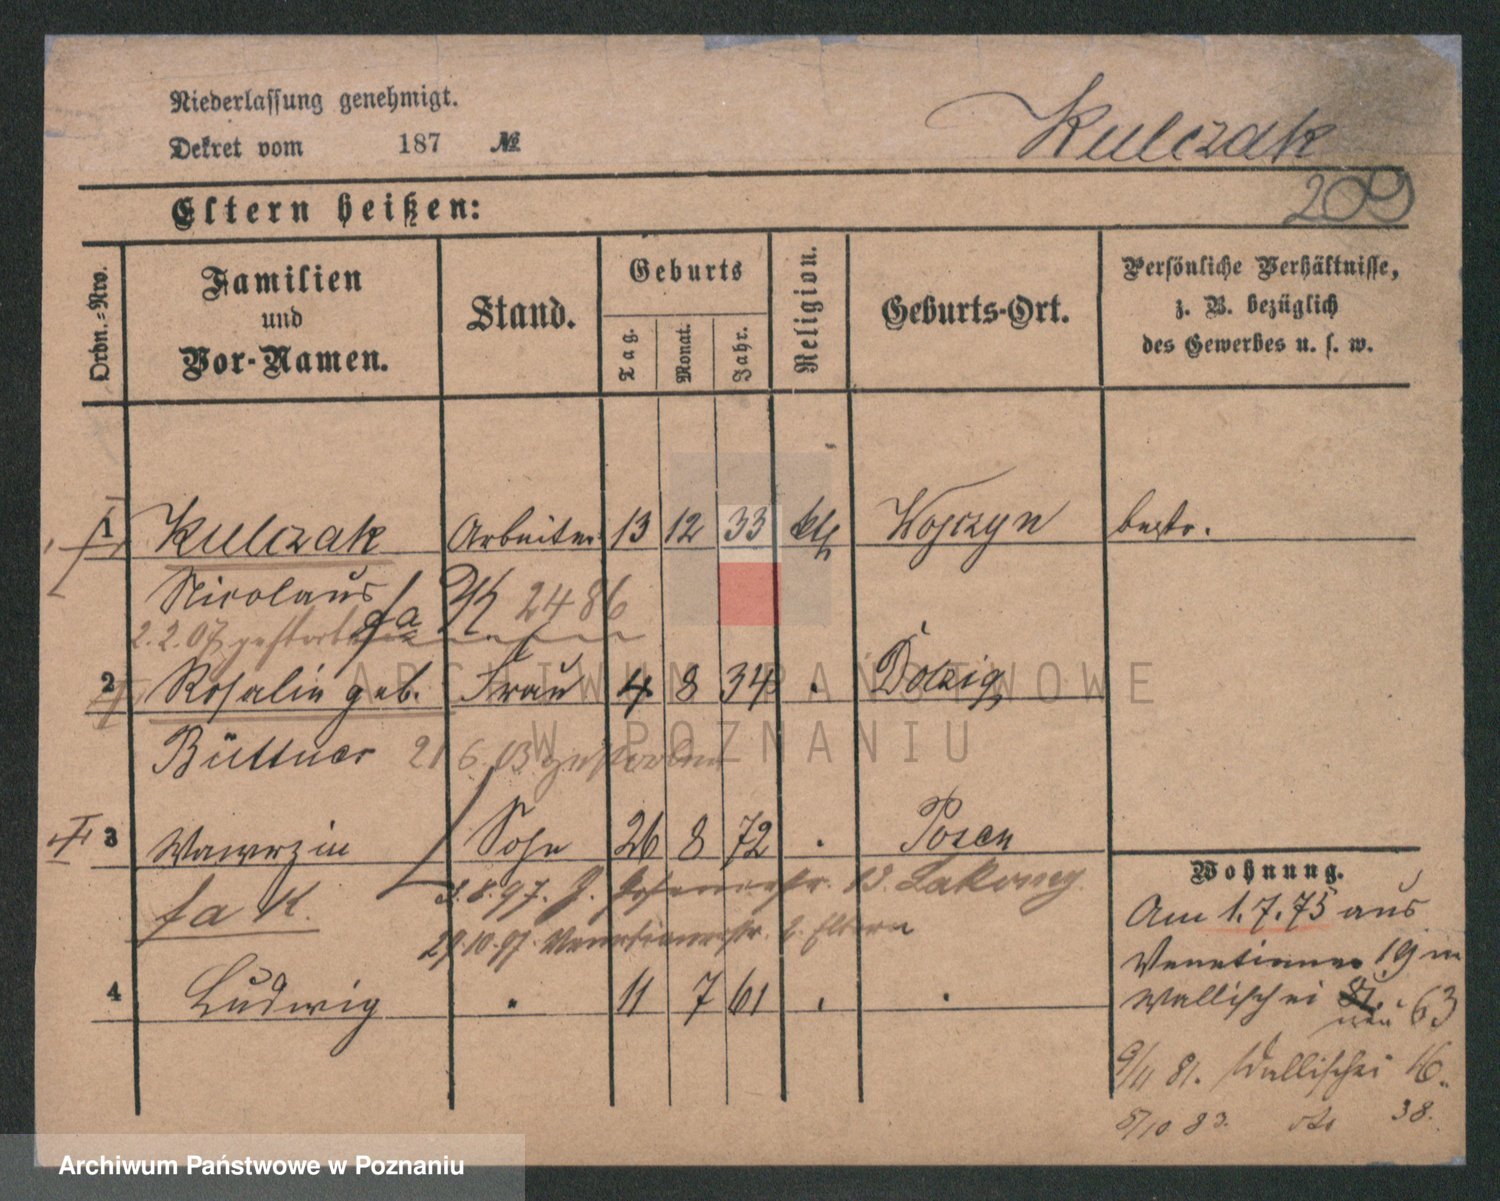 Niederlassung genehmigt.
Dekret vom 187 №
Kulczak
209
Eltern heißen:
Ordn.-Nro.
Familien und Vor-Namen.
Stand.
Geburts
Tag.
Monat.
Jahr.
Religion.
Geburts-Ort.
Persönliche Verhältnisse,
z. B. bezüglich
des Gewerbes u. s. w.
1 Kulczak Arbeiter 13 12 33 kth Wojczyn bestr.
Nicolaus
2486
2.2.07 gestorben
2 Rosalie geb. Frau 4 8 34 . Dolzig
Büttner 21 6. 03 gestorben
3 Wawrzin Sohn 26 8 72 . Posen
3.8.97.
fa K.
29.10.97. Venetianerstr. 2. Eltern
4 Ludwig " 11 7 61 . .
Wohnung.
Am 1.7.75 aus
Venetianer 19 m
Wallischei 63
9/11 81. Wallischei 16.
5/10 83. dto 38.
ARCHIWUM PAŃSTWOWE
W POZNANIU
Archiwum Państwowe w Poznaniu